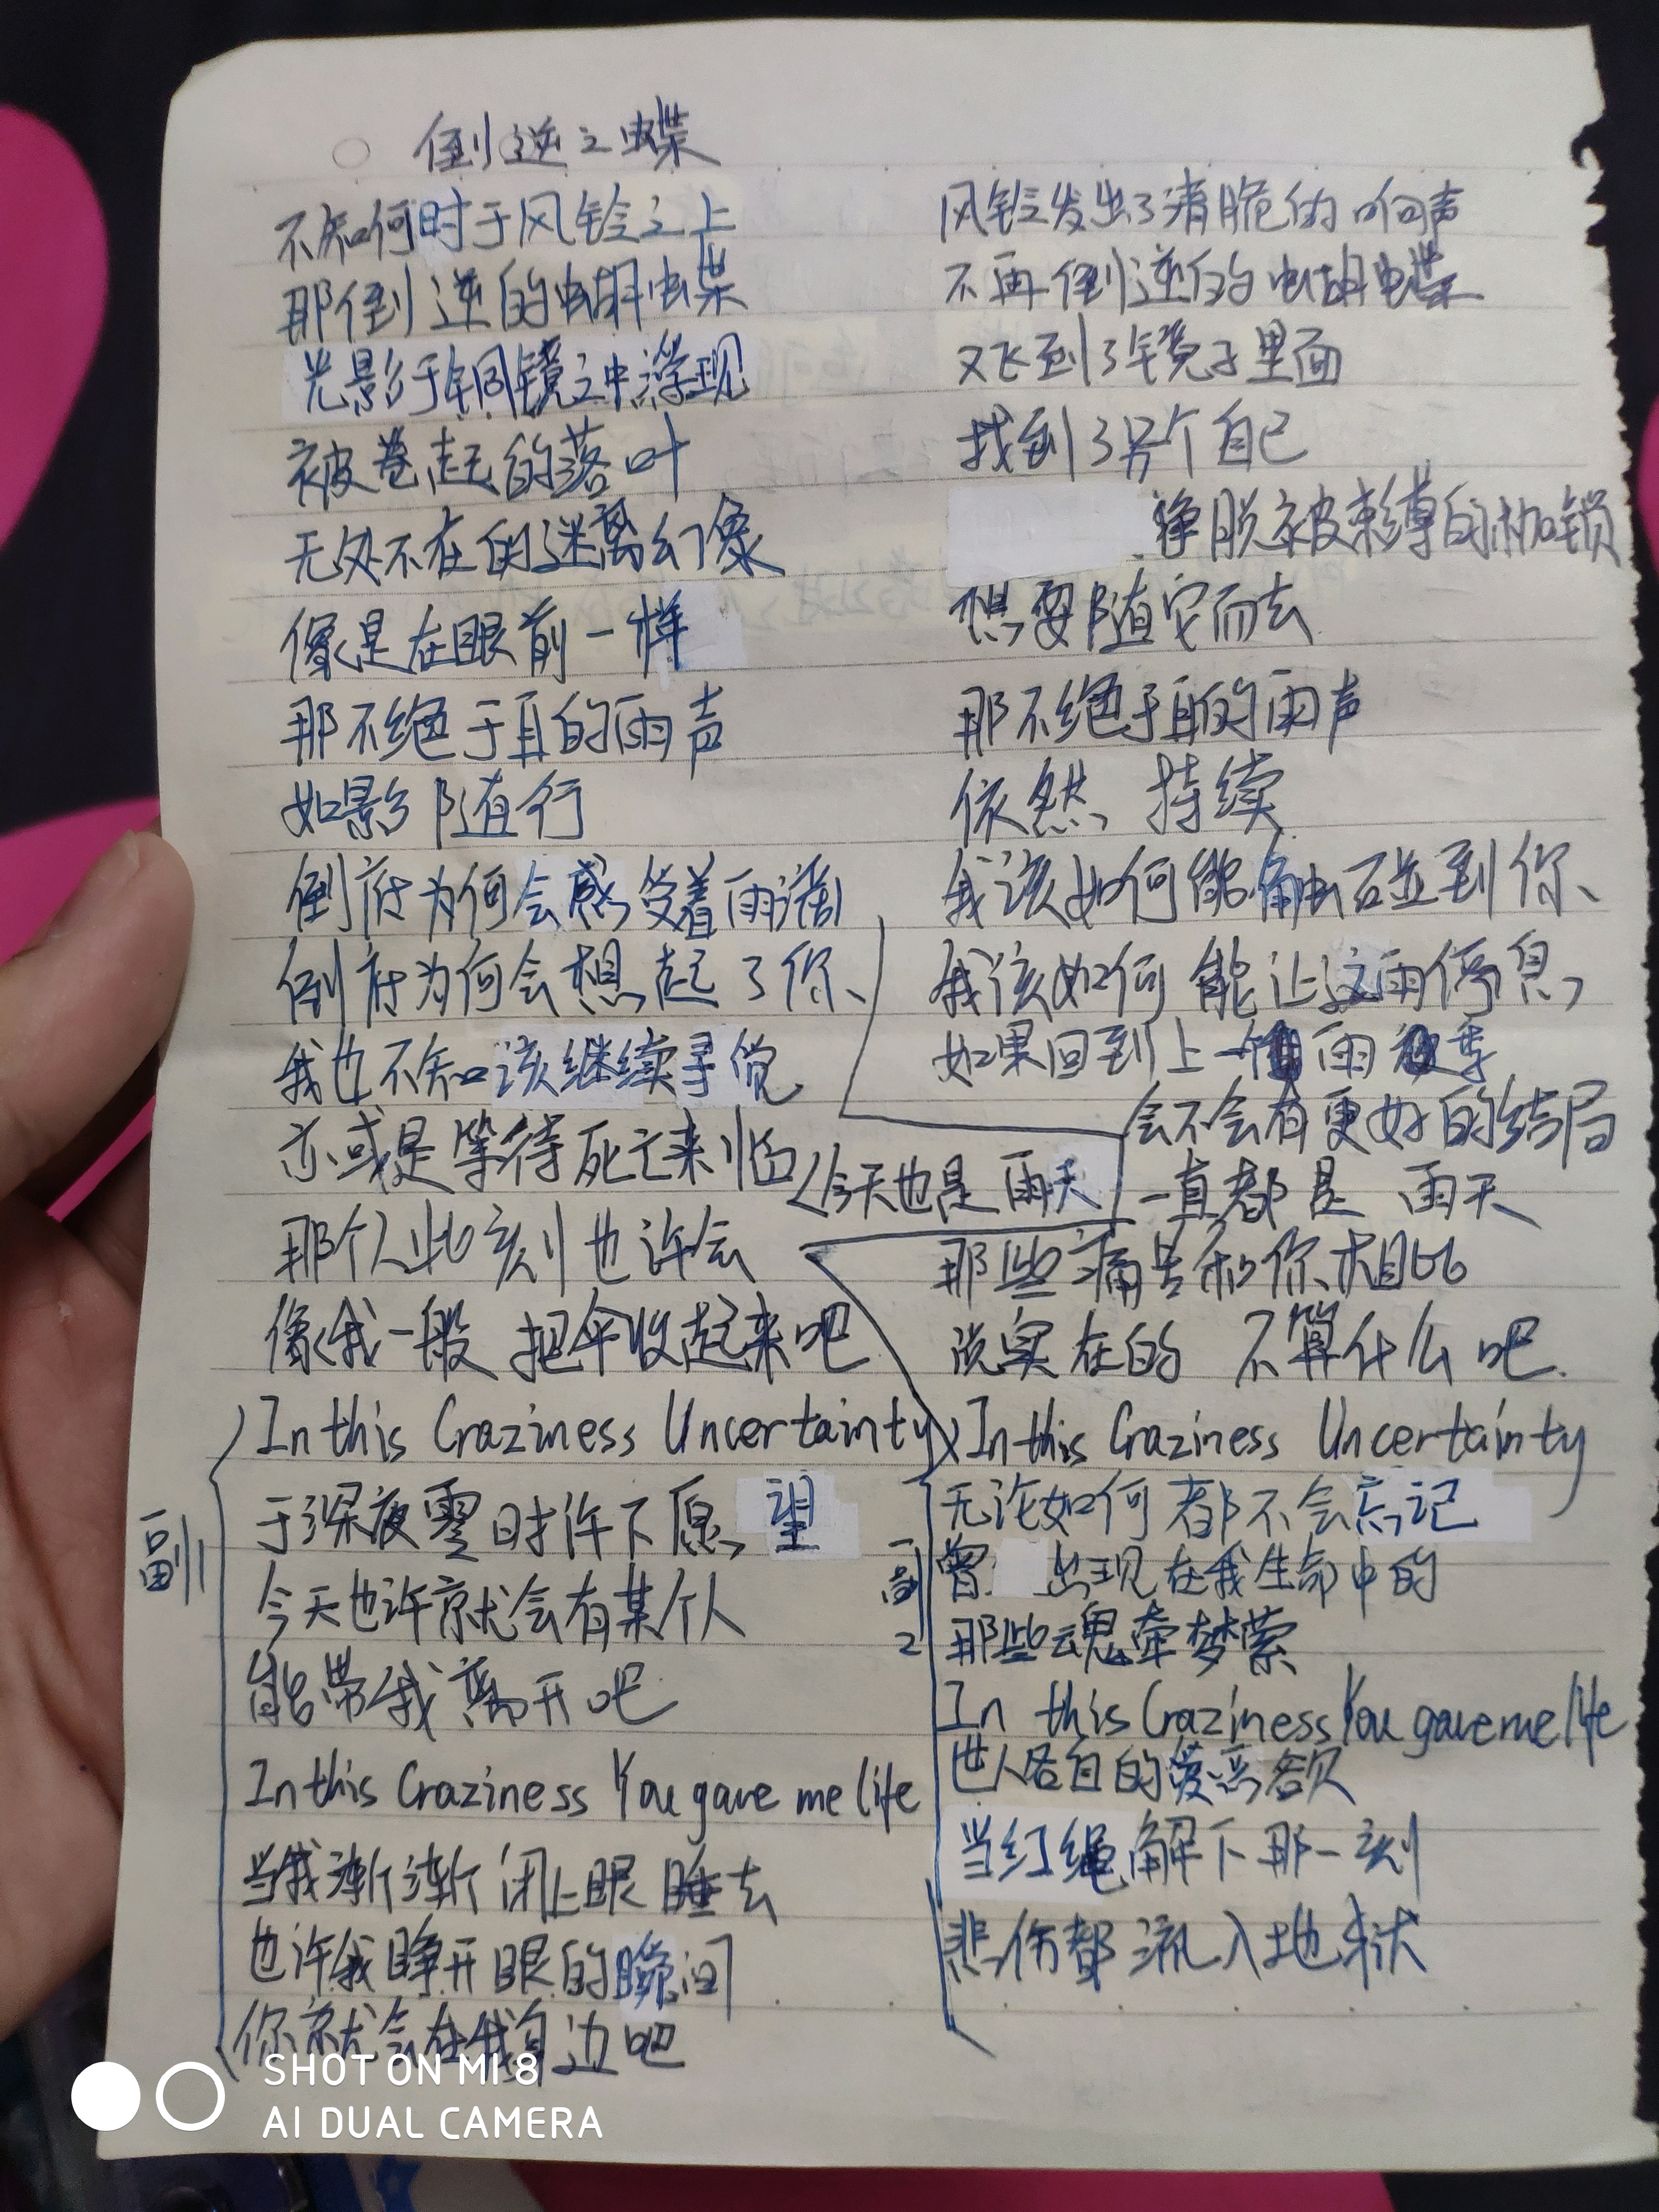 倒逆之蝶
不知何时于风铃之上
那倒逆的蝴蝶
光影于铜镜之中浮现
被卷起的落叶
无处不在的迷离幻像
像是在眼前一样
那不绝于耳的雨声
如影随行
倒府为何会感受着雨滴
倒府为何会想起了你
我也不知该继续寻觉
亦或是等待死亡来临
今天也是雨天
那个人此刻也许会
像我一般 把伞收起来吧
副
In this Craziness Uncertainty
于深夜零时许下愿望
今天也许就会有某个人
能带我离开吧
In this Craziness You gave me life
当我渐渐闭上眼睡去
也许我睁开眼的瞬间
你就会在我身边吧
风铃发出了清脆的响声
不再倒逆的蝴蝶
又飞到了镜子里面
找到了另个自己
挣脱被束缚的枷锁
想要随它而去
那不绝于耳的雨声
依然 持续
我该如何能触碰到你
我该如何能让这雨停息
如果回到上一個雨季
会不会有更好的结局
一直都是 雨天
那些痛苦和你相比
说实在的 不算什么吧.
副2
In this Craziness Uncertainty
无论如何都不会忘记
曾 出现在我生命中的
那些魂牵梦萦
In this Craziness You gave me life
世人各自的爱恶欲
当红绳解下那一刻
悲伤都流入地狱
SHOT ON MI 8
AI DUAL CAMERA